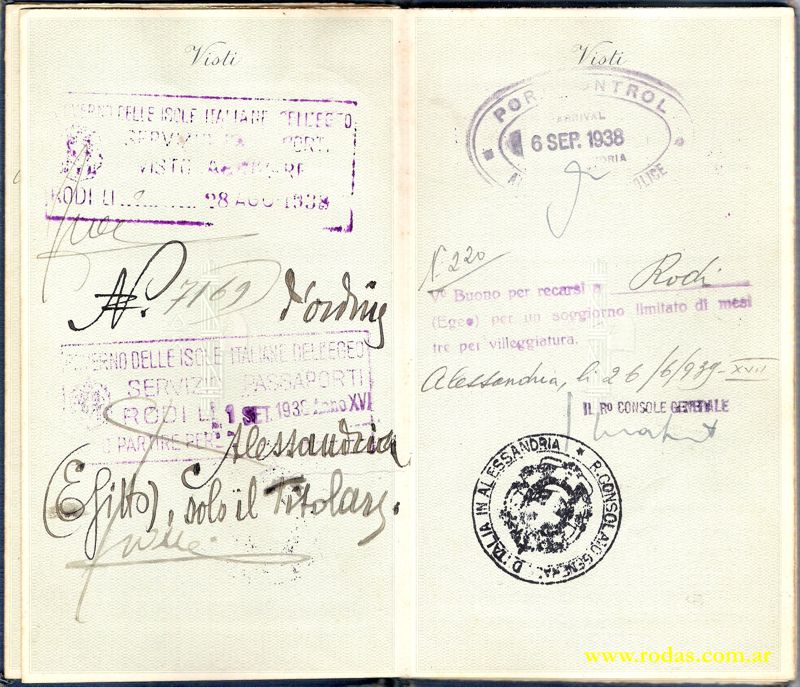 Visti
GOVERNO DELLE ISOLE ITALIANE DELL'EGEO
SERVIZIO PASSAPORTI
VISTO
RODI LI 28 AGO 1938
N. 7169 d'ordine
GOVERNO DELLE ISOLE ITALIANE DELL'EGEO
SERVIZIO PASSAPORTI
RODI LI 1 SET. 1938 Anno XVI
A PARTIRE PER
Alessandria
(Egitto), solo il Titolare.
Visti
PORT CONTROL
ARRIVAL
6 SEP. 1938
POLICE
N. 220
Vº Buono per recarsi a Rodi
(Egeo) per un soggiorno limitato di mesi
tre per villeggiatura.
Alessandria, li 26/6/939-XVII
IL Rº CONSOLE GENERALE
R. CONSOLATO GENERALE D'ITALIA IN ALESSANDRIA
www.rodas.com.ar